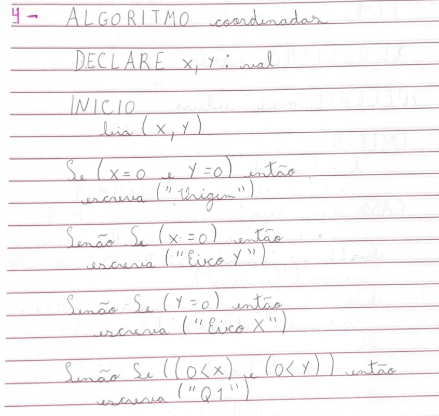 4- ALGORITMO coordenadas
DECLARE x, y : real
INICIO
leia (x, y)
Se (x=0 e y=0) então
escreva ("Origem")
Senão Se (x=0) então
escreva ("Eixo y")
Senão Se (y=0) então
escreva ("Eixo X")
Senão Se ((0<x) e (0<y)) então
escreva ("Q1")